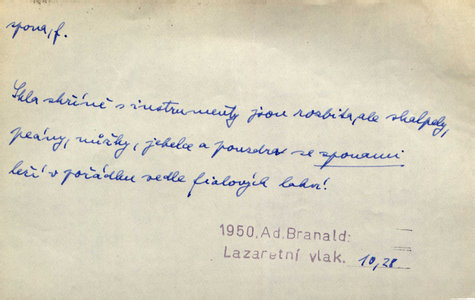 spona, f.
Skla skříně s instrumenty jsou rozbita, ale skalpely,
peány, nůžky, jehelce a pouzdro se sponami
leží v pořádku vedle fialových lahví!
1950, Ad. Branald:
Lazaretní vlak. 10, 28